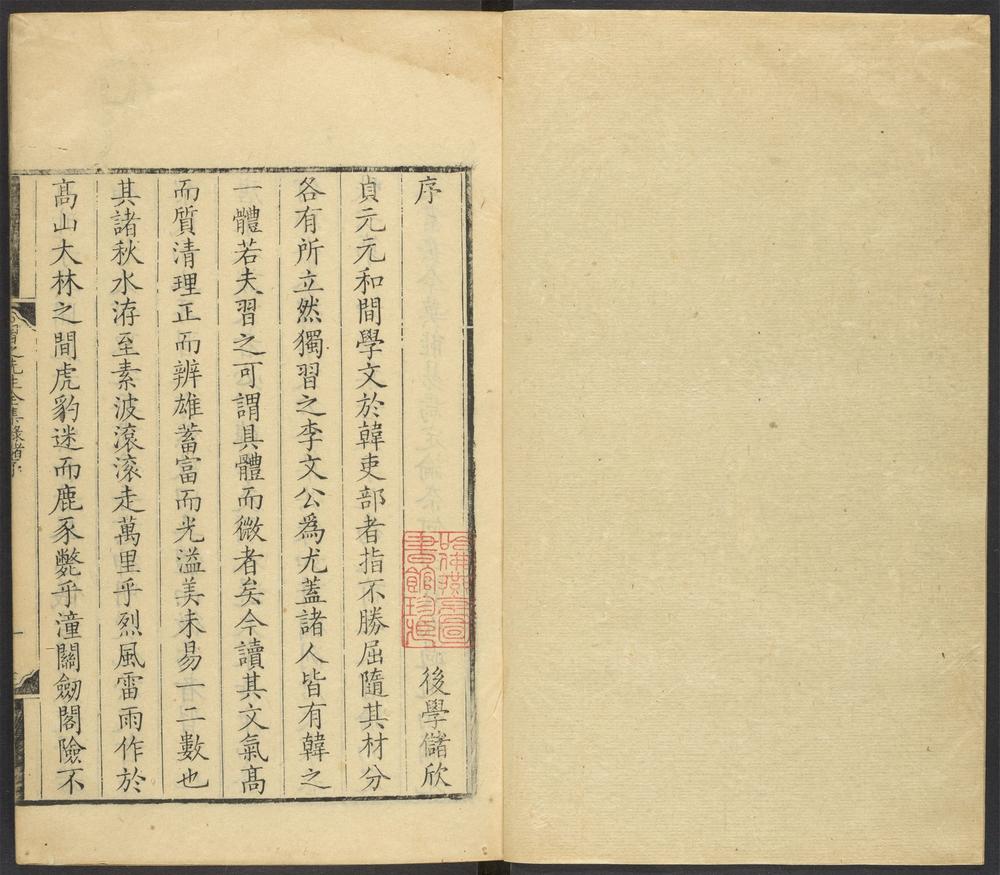 序
後學儲欣
貞元元和間學文於韓吏部者指不勝屈隨其材分
各有所立然獨習之李文公爲尤蓋諸人皆有韓之
一體若夫習之可謂具體而微者矣今讀其文氣髙
而質清理正而辨雄蓄富而光溢美未易一二數也
其諸秋水洊至素波滚滚走萬里乎烈風雷雨作於
髙山大林之間虎豹迷而鹿豕斃乎潼關劒閣險不
習之先生全集錄
一
哈佛燕京圖
書館珍藏